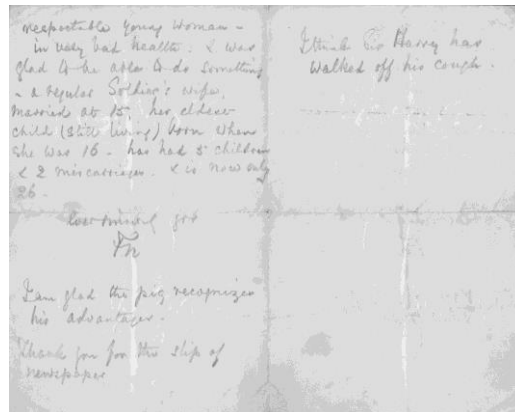 respectable young woman -
in very bad health. & was
glad to be able to do something
- a regular Soldier's wife,
married at 15, her eldest
child (still living) born when
she was 16 - has had 5 children
& 2 miscarriages. & is now only
26 -
ever
FN
I am glad the pig recognizes
his advantages.
Thank you for the slip of
newspaper
I think Sir Harry has
walked off his cough.